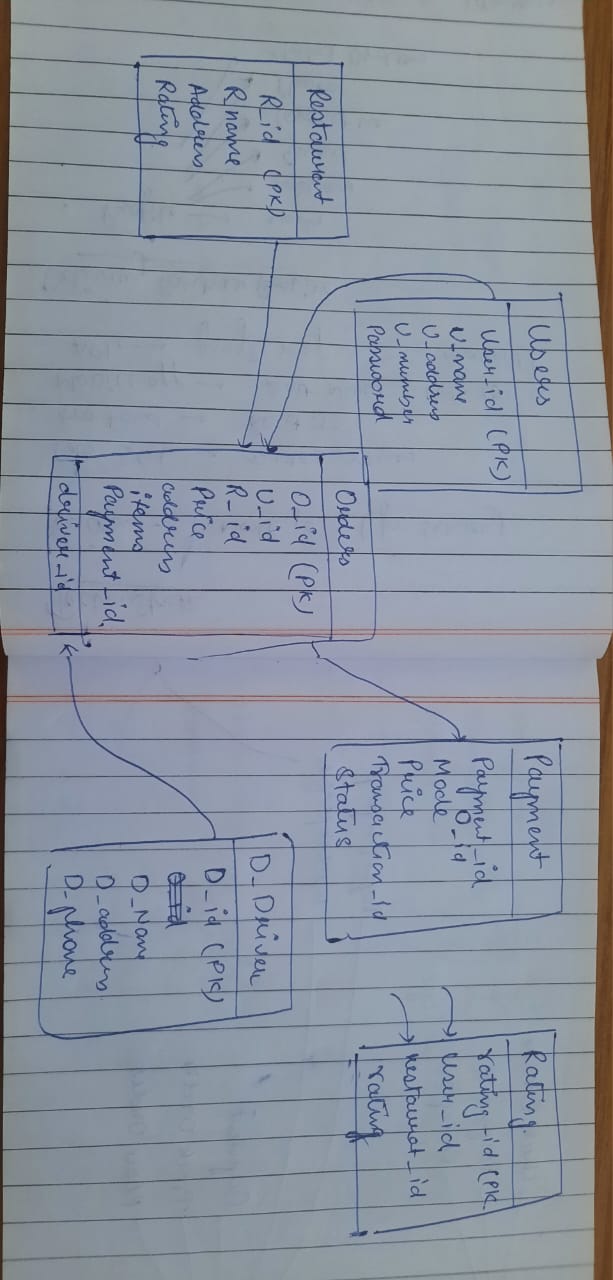 Restaurant
R_id (PK)
R_name
Address
Rating
Users
User_id (PK)
U_name
U_address
U_number
Password
Orders
O_id (PK)
U_id
R_id
Price
address
items
Payment_id
driver_id
Payment
Payment_id
O_id
Mode
Price
Transaction_id
Status
D_Driver
D_id (PK)
D_Name
D_address
D_phone
Rating.
rating_id (PK
User_id
restaurat_id
rating